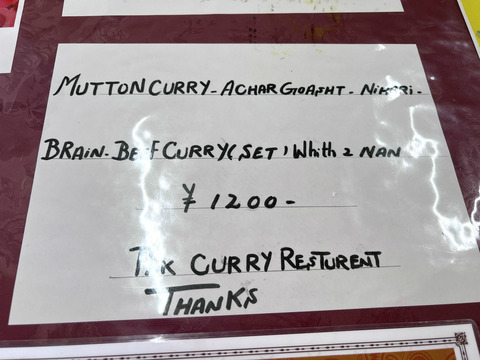 MUTTON CURRY - ACHAR GOASHT - NiHARi -
BRAiN - BEEF CURRY (SET) Whith 2 NAN
¥ 1200 -
CURRY RESTURENT
THANKS